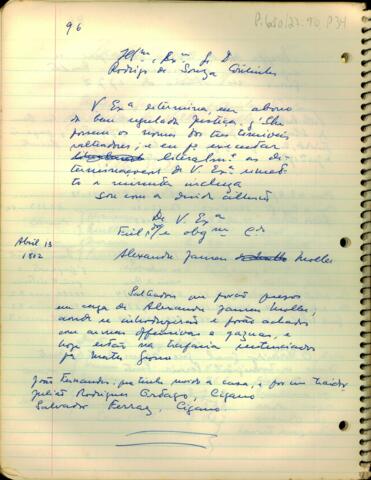 96
P. 680/27-90 P34
Illmo, Exmo Sr D
Rodrigo de Souza Coutinho
V Exa etermina, em abono
da bem regulada justiça, q
os nomes dos tres
salteadores, e eu pa executar
literalmte as de
terminaçoens de V. Exa
to a inclusa
Sou com a devida
De V. Exa
Fiel e obgmo Cdo
Abril 13
1802
Alexandre Jansen Moller
Salteadores que forão presos
em caza de Alexandre Jansen Moller,
aonde se introduzirão e forão achados
com armas offensivas e gazuas, e
hoje estão na trafaria sentenciados
pa Matto Groso
João Fernandes, que tinha a caza, e foi um traidor,
Julião Rodrigues, Cigano
Salvador Ferraz, Cigano